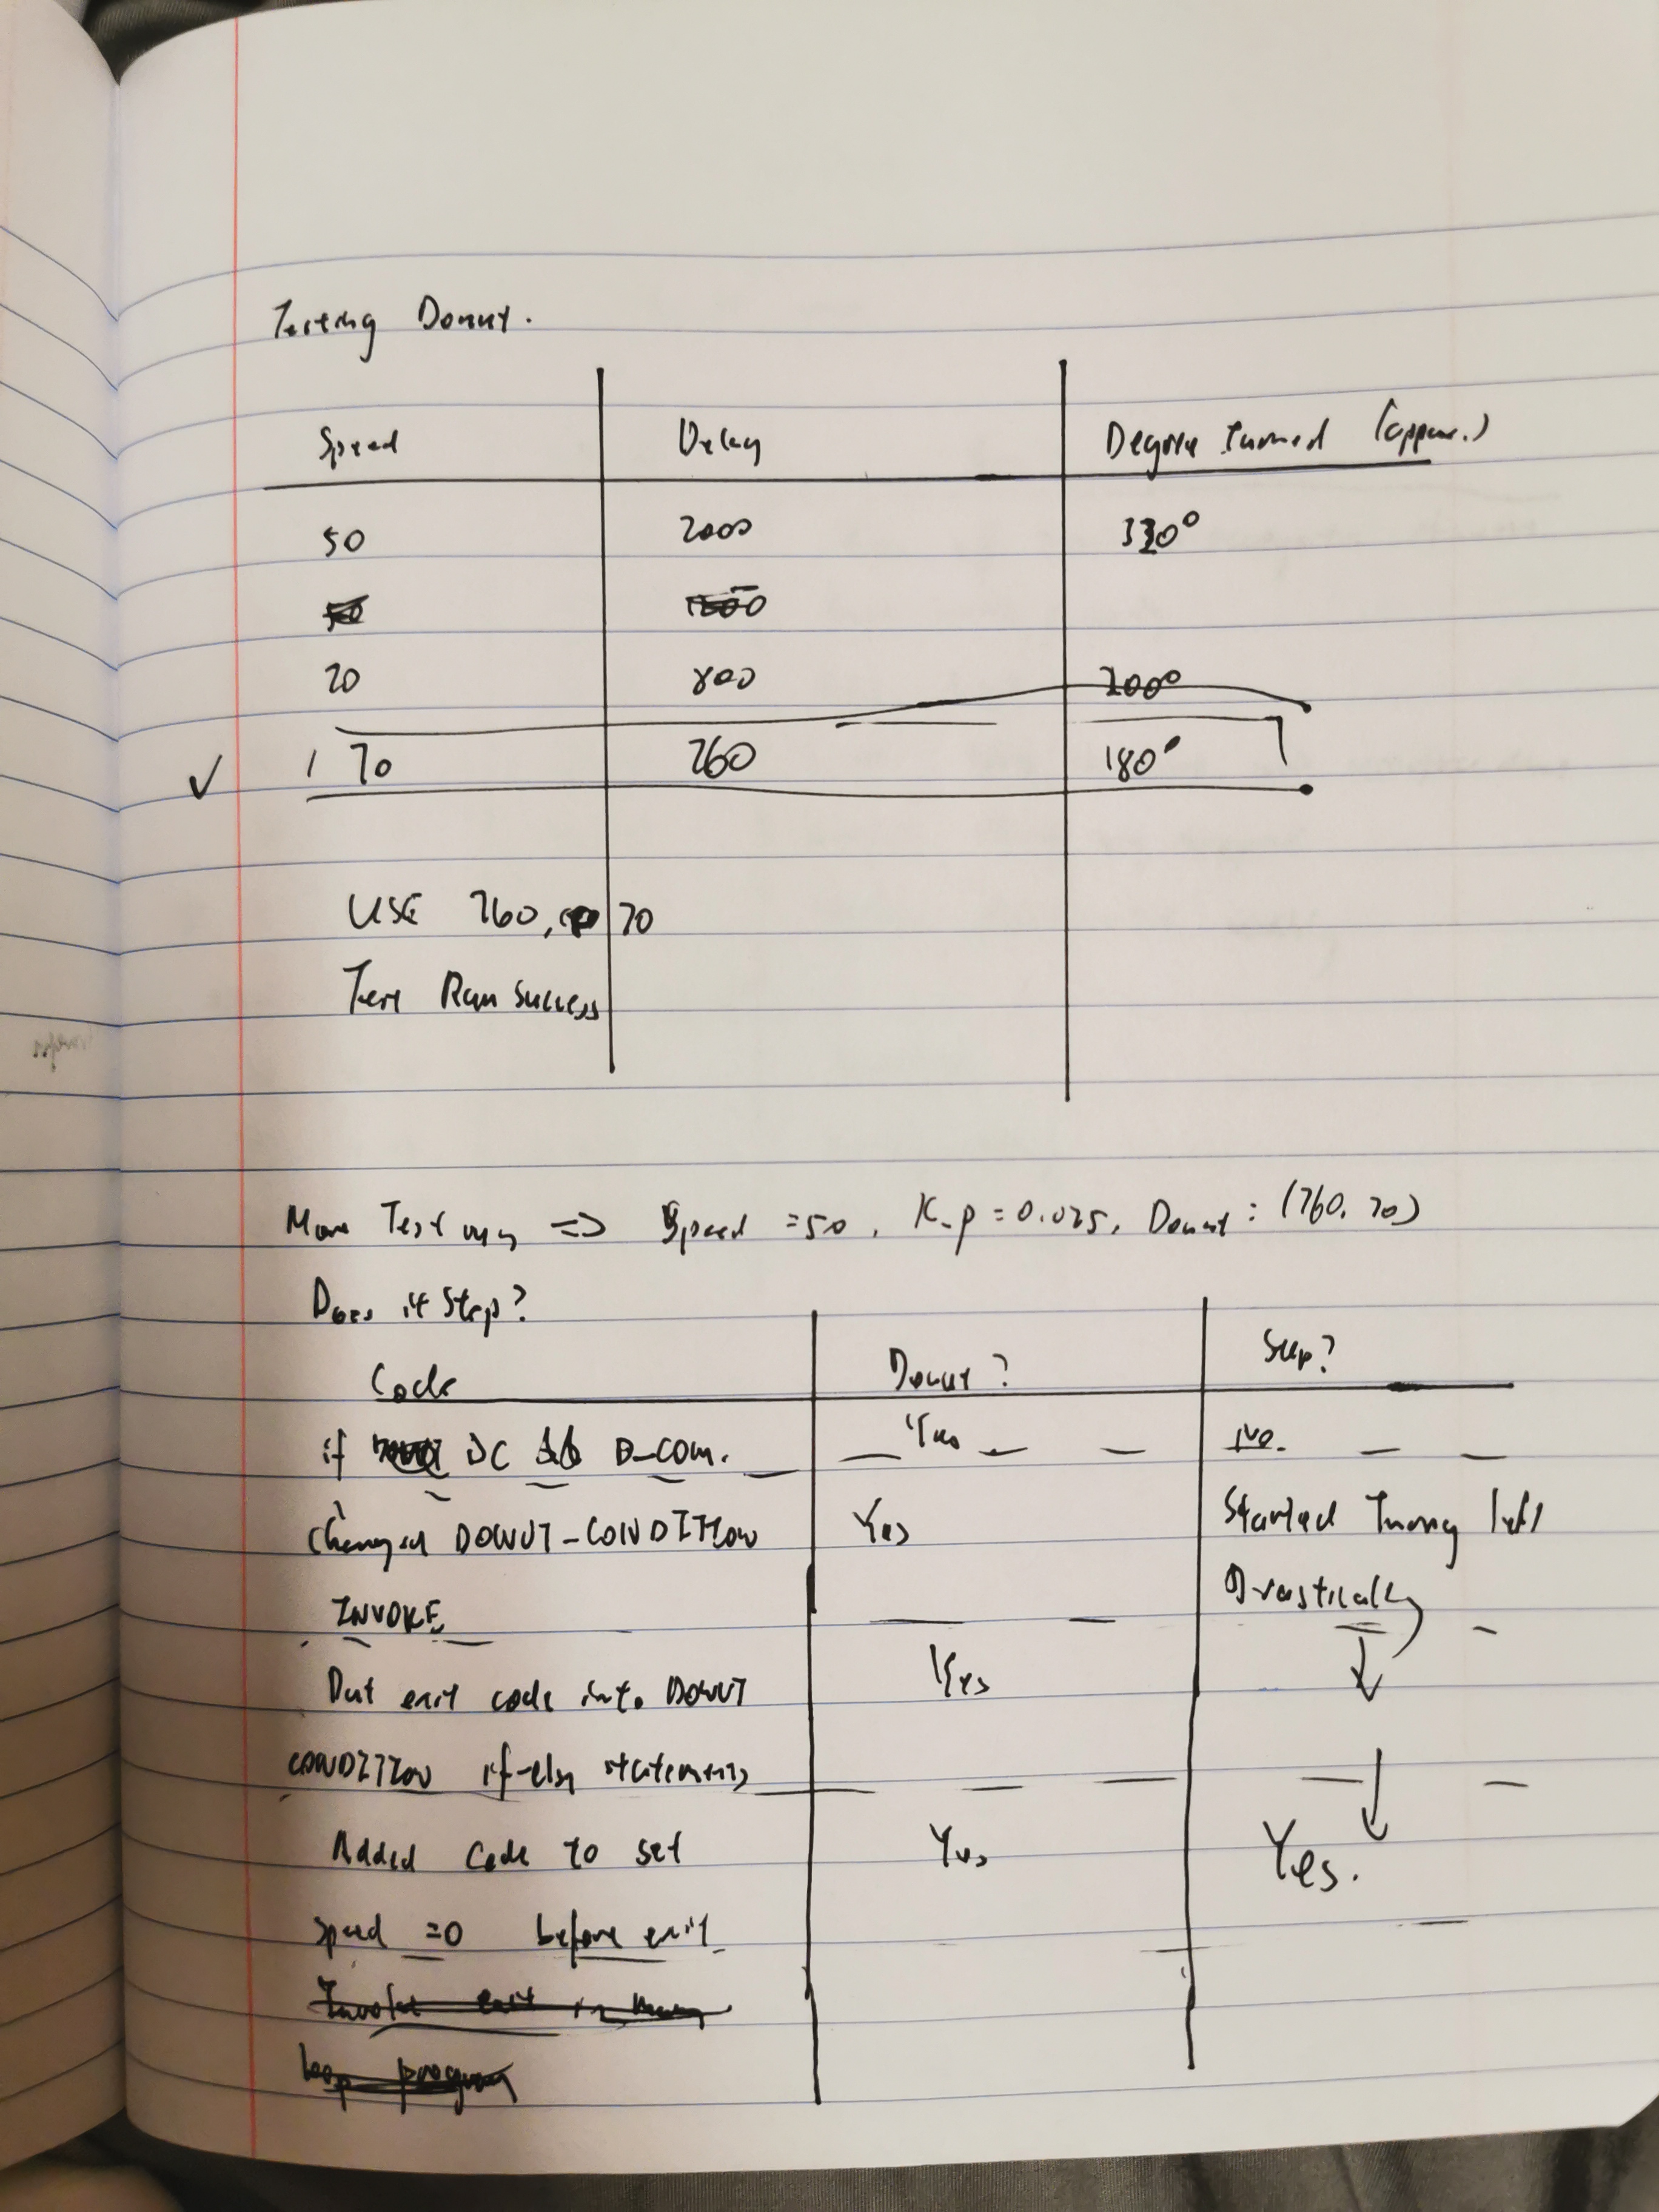 Testing Donut.
Speed Delay Degree turned (approx.)
50 2000 330°
50
70 800 200°
✓ 70 760 180°
USE 760, 70
Test Run Success
More Testing => Speed = 50, K_p = 0.025, Donut: (760, 70)
Does it Stop?
Code Donut? Stop?
if DC && D_com. Yes No.
Changed DONUT_CONDITION Yes Started Turning left
INVOKE Drastically
Put exit code into DONUT Yes ↓
CONDITION if-else statements ↓
Added Code to set Yes Yes.
speed =0 before exit
Invoke exit in
loop program